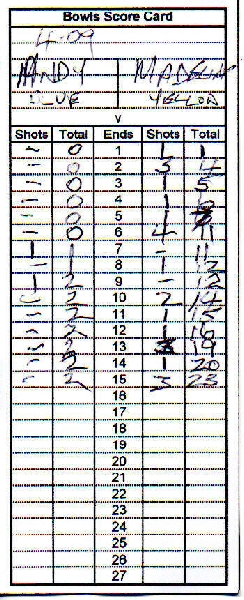 Bowls Score Card
4-09
MANDY
BLUE YELLOW
V
Shots Total Ends Shots Total
- 0 1 1 1
- 0 2 3 4
- 0 3 1 5
- 0 4 1 6
- 0 5 1 7
- 0 6 4 11
1 1 7 - 11
- 1 8 1 12
1 2 9 - 12
- 2 10 2 14
- 2 11 1 15
- 2 12 1 16
- 2 13 3 19
- 2 14 1 20
- 2 15 3 23
16
17
18
19
20
21
22
23
24
25
26
27